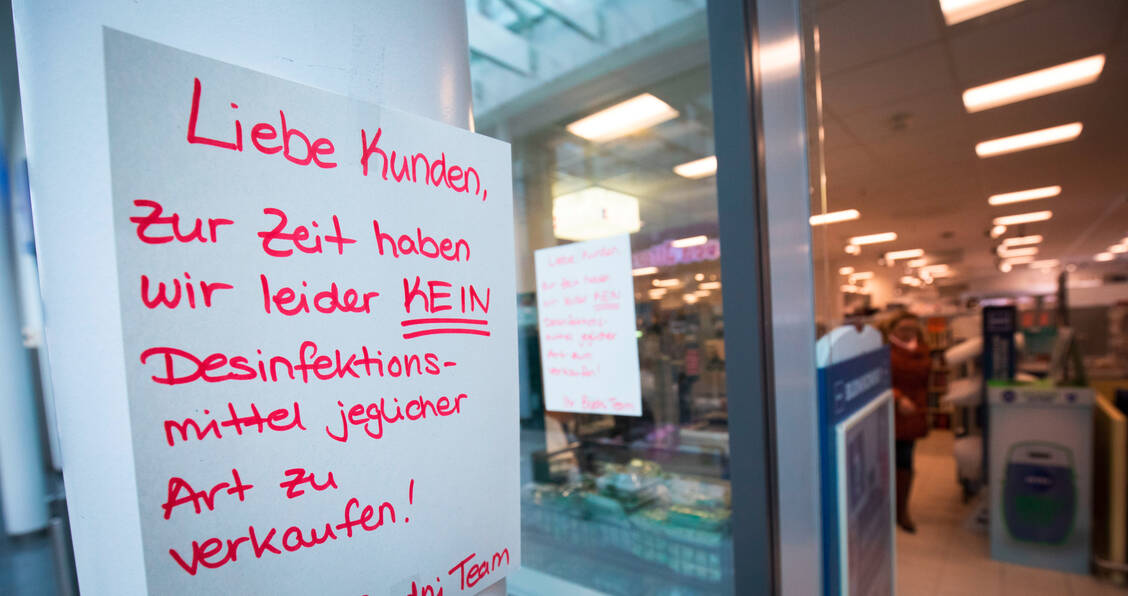 Liebe Kunden,
zur Zeit haben
wir leider KEIN
Desinfektions-
mittel jeglicher
Art zu
verkaufen!
Team
Liebe Kunden
zur Zeit haben
wir leider KEIN
Desinfektions-
mittel jeglicher
Art zum
verkaufen!
Ihr Budni Team
NIVEA